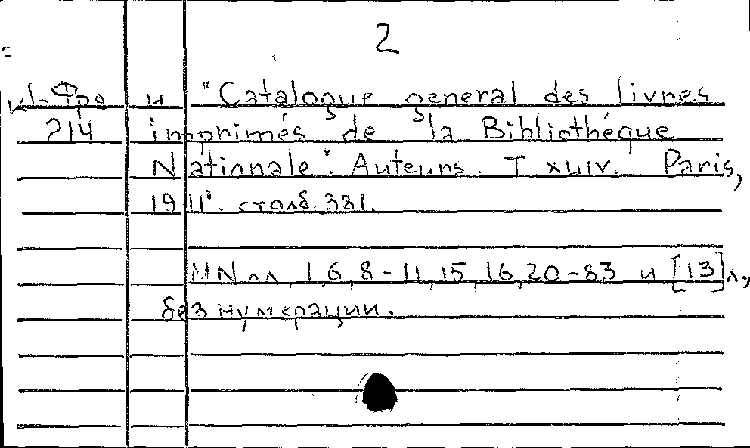 2
и "Catalogue general des livres
214 imprimés de la Bibliothéque
Nationale". Auteurs. T XLIV. Paris,
1911. столб. 381.
NN лл 1, 6, 8-11, 15, 16, 20-83 и [13] л,
без нумерации.